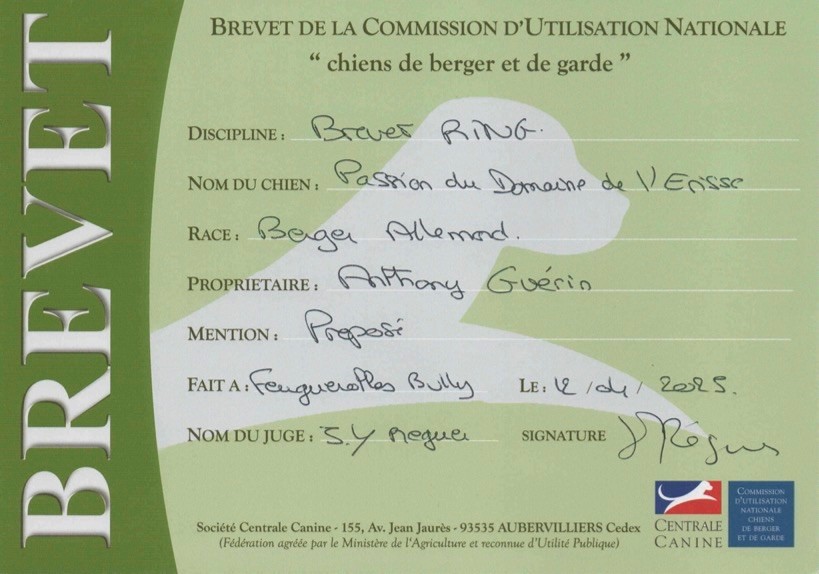 BREVET
BREVET DE LA COMMISSION D'UTILISATION NATIONALE
“ chiens de berger et de garde ”
DISCIPLINE : Brevet RING.
NOM DU CHIEN : Passion du Domaine de l'Erisse
RACE : Berger Allemand.
PROPRIETAIRE : Anthony Guérin
MENTION : Proposé
FAIT A : Feuguerolles Bully LE : 12 / 04 / 2025.
NOM DU JUGE : J.Y Reguer SIGNATURE
Société Centrale Canine - 155, Av. Jean Jaurès - 93535 AUBERVILLIERS Cedex
(Fédération agréée par le Ministère de l'Agriculture et reconnue d'Utilité Publique)
CENTRALE
CANINE
COMMISSION
D'UTILISATION
NATIONALE
CHIENS
DE BERGER
ET DE GARDE